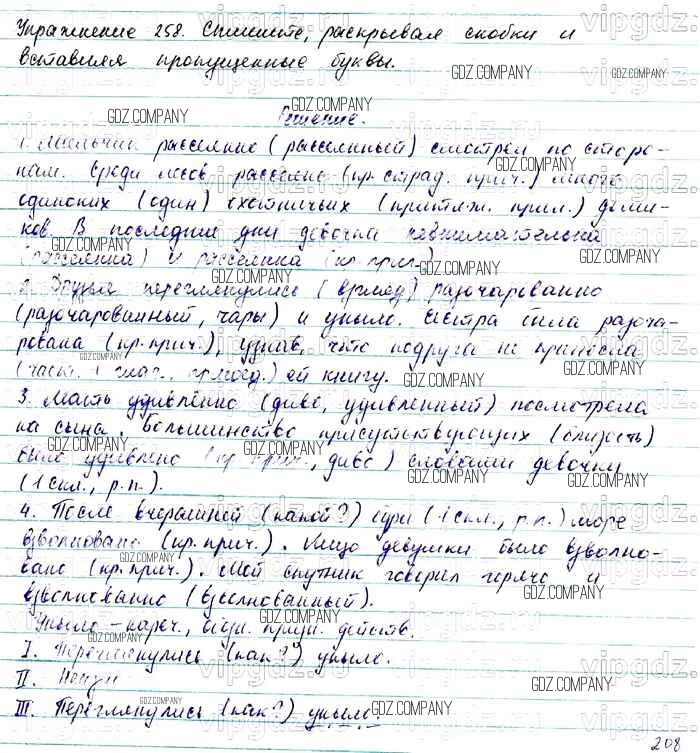 Упражнение 258. Спишите, раскрывая скобки и
вставляя пропущенные буквы.
GDZ.COMPANY
Решение.
1. Мальчик рассеянно (рассеянный) смотрел по сторо-
нам. Среди лесов рассеяно (кр. страд. прич.) много
одиноких (один) охотничьих (притяж. прил.) доми-
ков. В последние дни девочка невнимательна
(рассеянна) и рассеянна (кр. прил.)
2. Друзья переглянулись (взгляд) разочарованно
(разочарованный, чары) и уныло. Сестра была разоча-
рована (кр. прич.), узнав, что подруга не принесла
(част. глаг.) ей книгу.
3. Мать удивлённо (диво, удивленный) посмотрела
на сына. Большинство присутствующих (близость)
было удивлено (кр. прич., диво) словами девочки
(1 скл., р.п.).
4. После вчерашней (какой?) бури (1 скл., р.п.) море
взволновано (кр. прич.). Лицо девушки было взволно-
вано (кр. прич.). Мой спутник говорил горячо и
взволнованно (взволнованный).
Уныло – нареч., призн. действ.
I. Переглянулись (как?) уныло.
II. Неизм
III. Переглянулись (как?) уныло.
GDZ.COMPANY
208